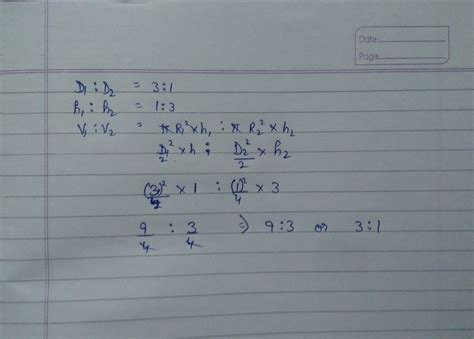 Date
Page
D₁ : D₂ = 3:1
h₁ : h₂ = 1:3
V₁ : V₂ = π R₁² × h₁ : π R₂² × h₂
D₁²/2 × h : D₂²/2 × h₂
(3)²/4 × 1 : (1)²/4 × 3
9/4 : 3/4 ⇒ 9:3 or 3:1